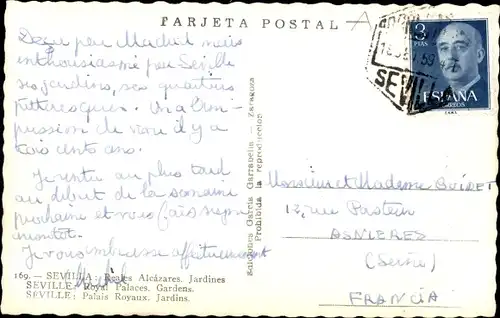 TARJETA POSTAL
Deçu par Madrid mais
enthousiasmé par Seville
ses jardins, ses quartiers
pittoresques. On a l'im-
pression de vivre il y a
trois cents ans.
Je rentre au plus tard
au début de la semaine
prochaine et vous
Je vous embrasse affectueusement
169. - SEVILLA: Reales Alcázares. Jardines
SEVILLE: Royal Palaces. Gardens.
SEVILLE: Palais Royaux. Jardins.
Ediciones García Garrabella - Zaragoza
Prohibida la reproducción
3
PTAS
ESPAÑA
CORREOS
SEVILLA
Monsieur et Madame
13, rue Pasteur
ASNIERES
(Seine)
FRANCIA